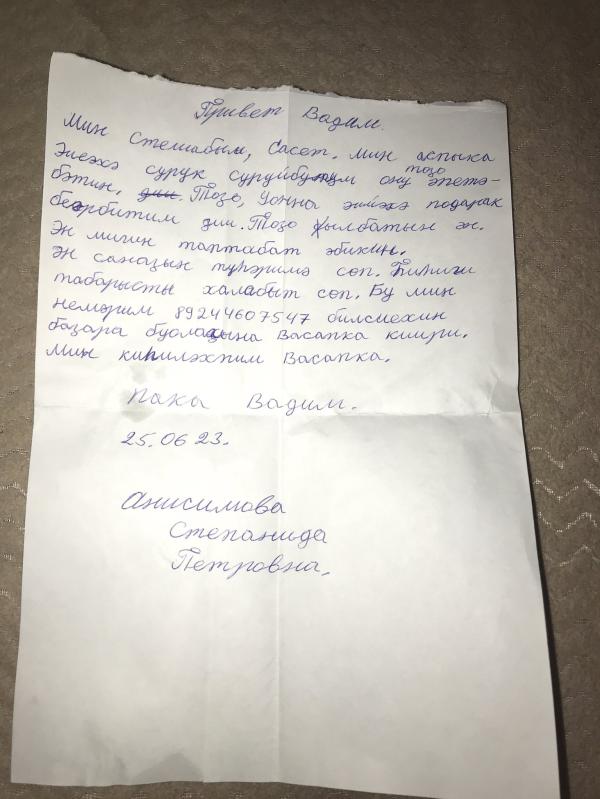 Привет Вадим.
Мин Стешабын, Сасет. Мин аспыка
Эйэхэ сурук суруйбутум ону тоҕо эпетэ-
бэтин, дии. Тоҕо, Уонна эйиэхэ подарак
беэрбитим дии. Тоҕо ылбатын эн.
Эн мигин таптабат эбикин.
Эн санаҕын түһэримэ сөп. Биһиги
табарысты халабыт сөп. Бу мин
немэрим 89244607547 билсиехин
баҕара буолаҕына Васапка киири.
Мин киһилэхпим Васапка.
Пака Вадим.
25.06 23.
Анисимова
Степанида
Петровна.